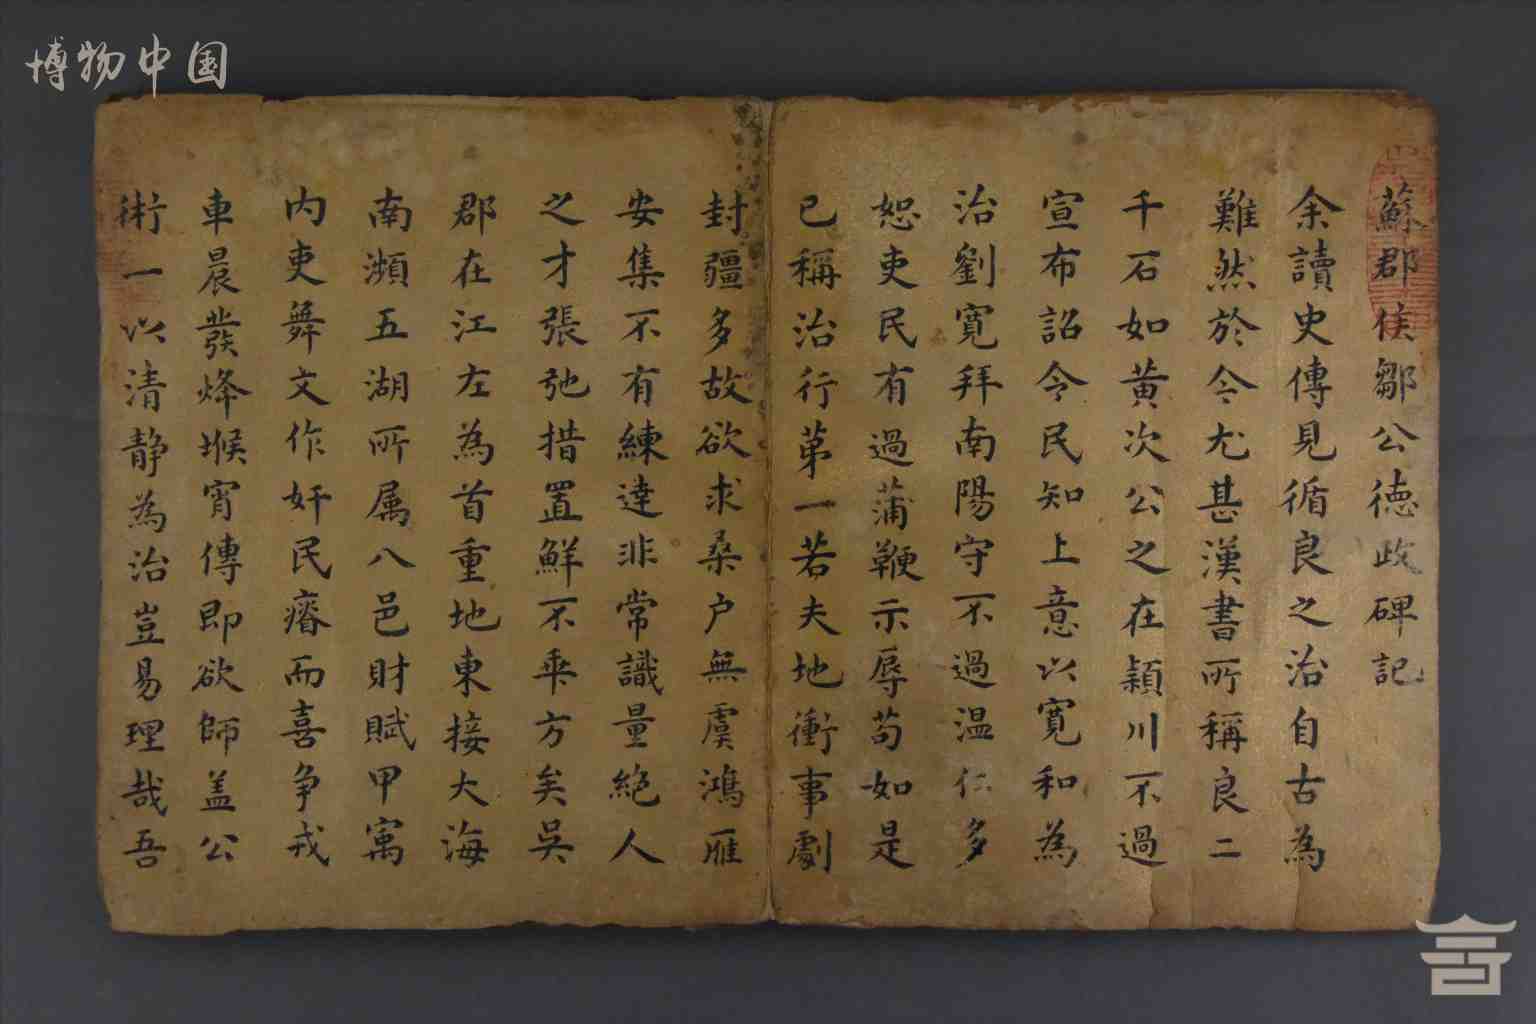 博物中国
蘇郡侯鄒公德政碑記
余讀史傳見循良之治自古為
難然於今尤甚漢書所稱良二
千石如黃次公之在潁川不過
宣布詔令民知上意以寬和為
治劉寬拜南陽守不過温仁多
恕吏民有過蒲鞭示辱苟如是
已稱治行第一若夫地衝事劇
封疆多故欲求桑户無虞鴻雁
安集不有練達非常識量絶人
之才張弛措置鮮不乖方矣吳
郡在江左為首重地東接大海
南瀕五湖所属八邑財賦甲寓
内吏舞文作奸民瘠而喜争戎
車晨發烽堠宵傳即欲師盖公
術一以清静為治豈易理哉吾